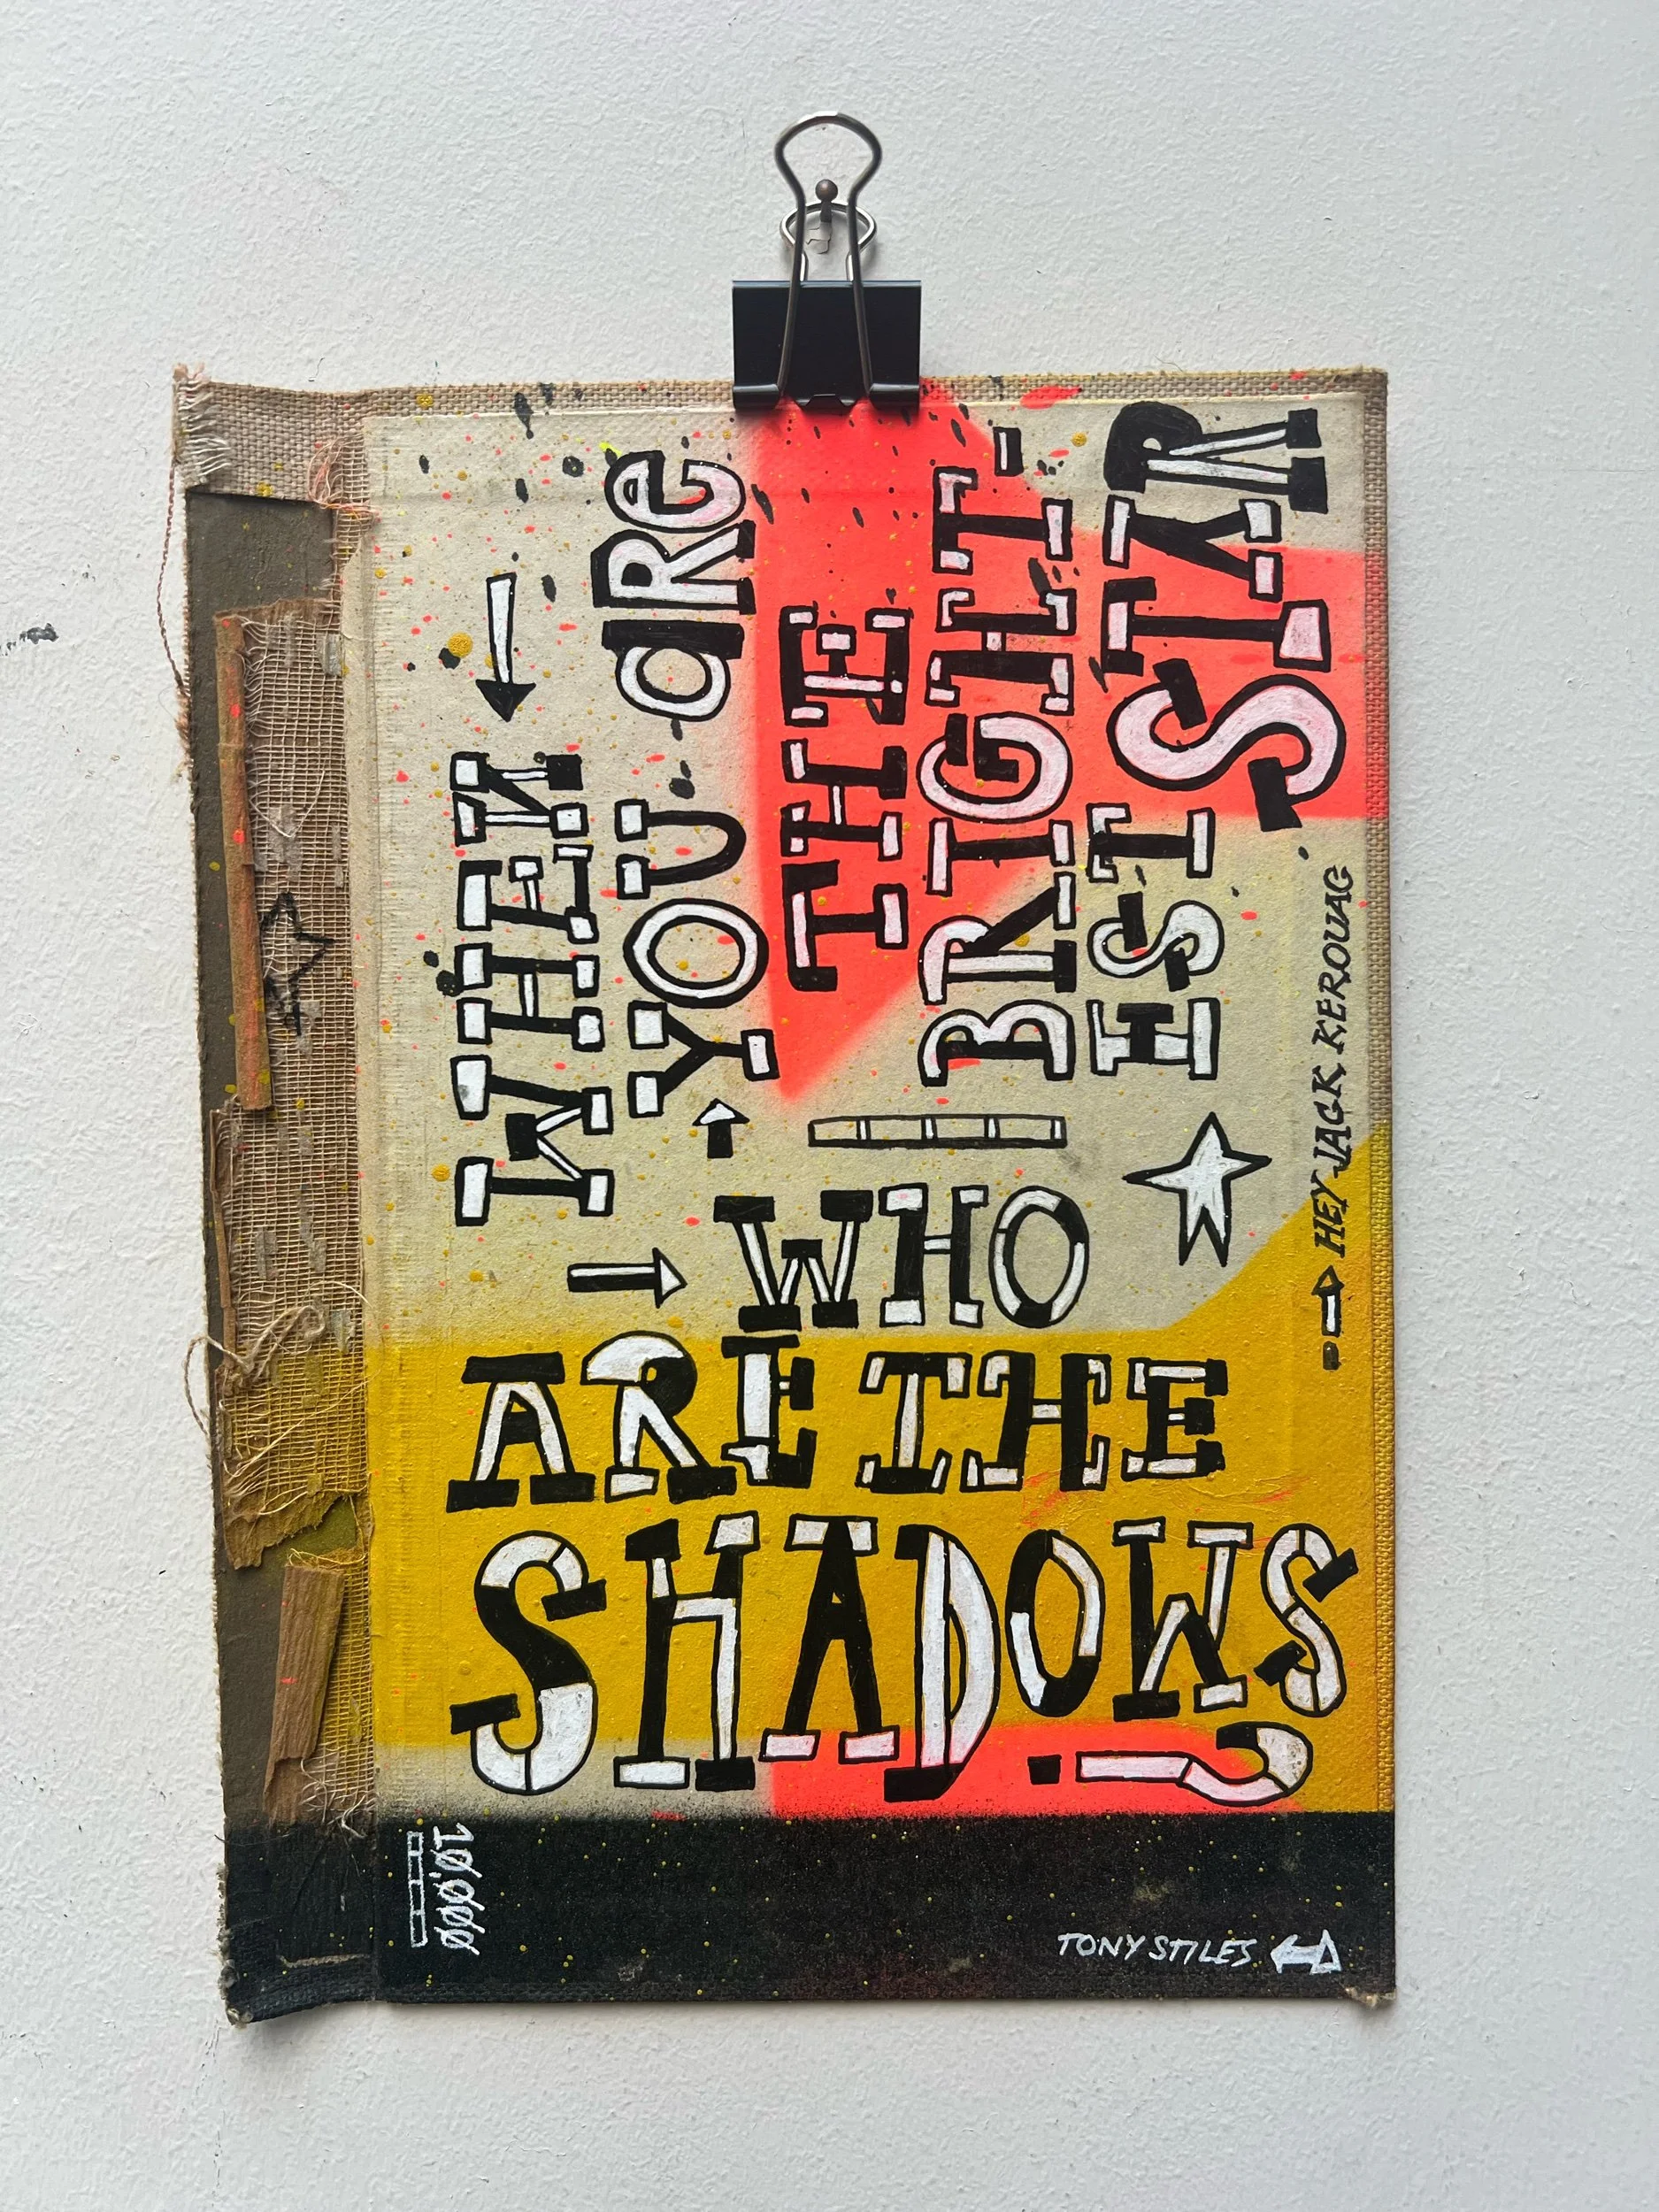 WHEN
YOU aRe
THE
BRIGHT-
EST
STAR
WHO
ARE THE
SHADOWS?
HEY JACK KEROUAC
10,000
TONY STILES